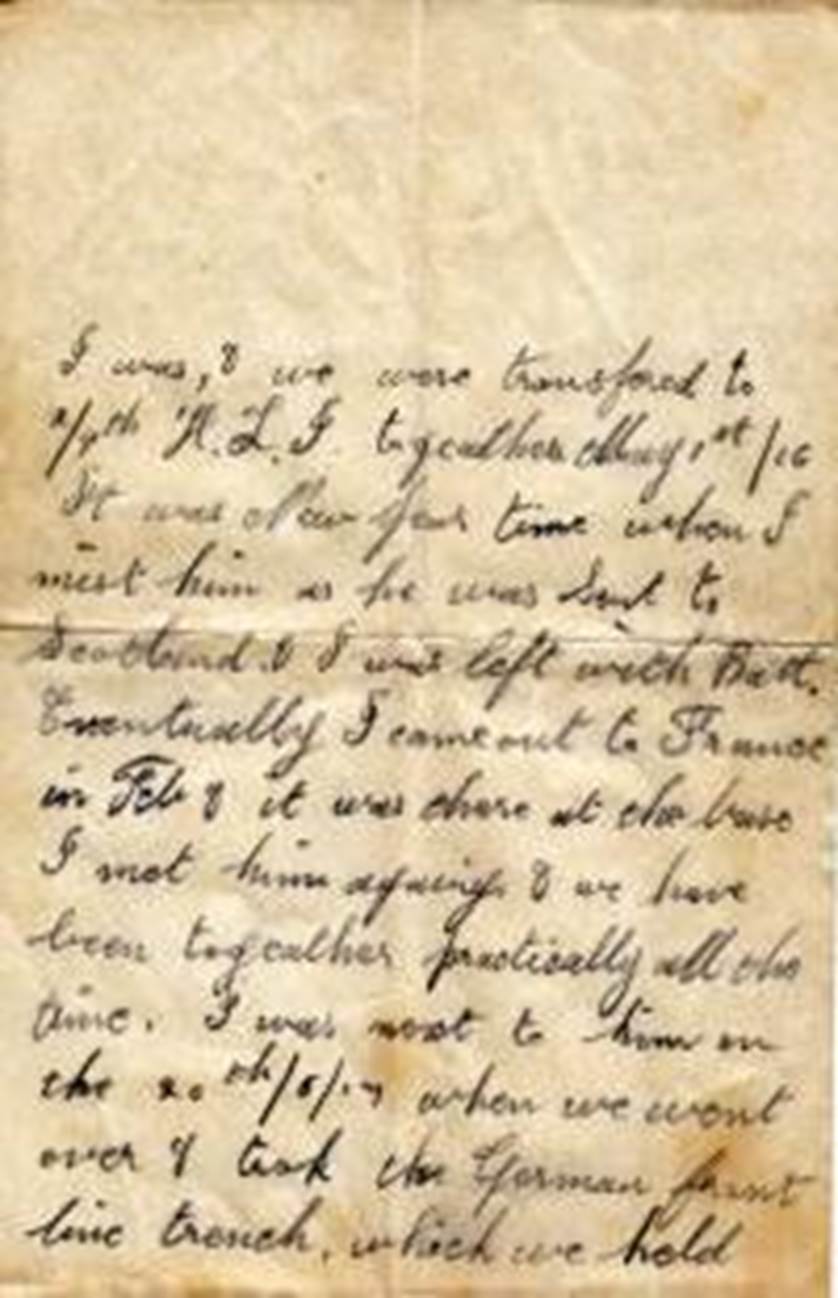 I was, & we were transfered to
2/9th H.L.I. togeather May 1st/16
It was New Year time when I
mist him as he was sent to
Scotland. & I was left with Batt.
Eventually I came out to France
in Feb & it was there at the base
I met him again & we have
been togeather practically all the
time. I was next to him on
the 20th/5/17 when we went
over & took the German front
line trench, which we held